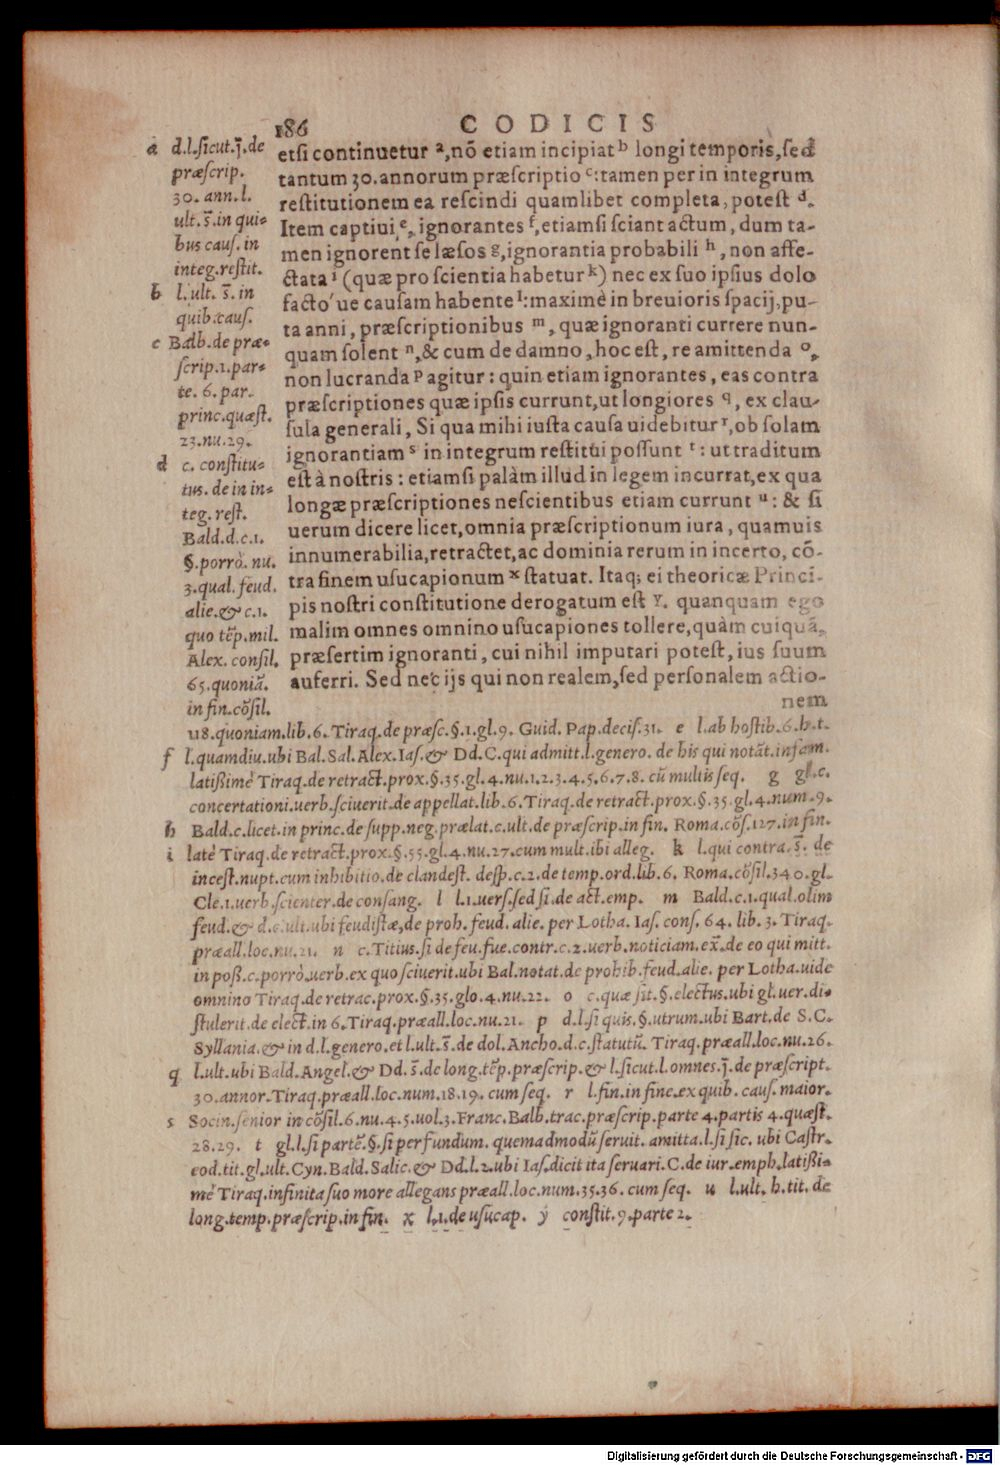 186 CODICIS
etsi continuetur ᵃ, nō etiam incipiat ᵇ longi temporis, sed
tantum 30. annorum præscriptio ᶜ: tamen per in integrum
restitutionem ea rescindi quamlibet completa, potest ᵈ.
Item captiui ᵉ, ignorantes ᶠ, etiamsi sciant actum, dum ta-
men ignorent se læsos ᵍ, ignorantia probabili ʰ, non affe-
ctata ⁱ (quæ pro scientia habetur ᵏ) nec ex suo ipsius dolo
facto'ue causam habente ˡ: maximè in breuioris spacij, pu-
ta anni, præscriptionibus ᵐ, quæ ignoranti currere nun-
quam solent ⁿ, & cum de damno, hoc est, re amittenda ᵒ,
non lucranda ᵖ agitur: quin etiam ignorantes, eas contra
præscriptiones quæ ipsis currunt, ut longiores q, ex clau-
sula generali, Si qua mihi iusta causa uidebitur ʳ, ob solam
ignorantiam ˢ in integrum restitui possunt ᵗ: ut traditum
est à nostris: etiamsi palàm illud in legem incurrat, ex qua
longæ præscriptiones nescientibus etiam currunt ᵘ: & si
uerum dicere licet, omnia præscriptionum iura, quamuis
innumerabilia, retractet, ac dominia rerum in incerto, cō-
tra finem usucapionum ˣ statuat. Itaq; ei theoricæ Princi-
pis nostri constitutione derogatum est ʸ. quanquam ego
malim omnes omnino usucapiones tollere, quàm cuiquā,
præsertim ignoranti, cui nihil imputari potest, ius suum
auferri. Sed nec ijs qui non realem, sed personalem actio-
nem
a d.l.sicut.j̄.de
præscrip.
30. ann. l.
ult. s̄. in qui-
bus caus. in
integ. restit.
b l. ult. s̄. in
quib. caus.
c Balb. de præ-
scrip. 1. par-
te. 6. par.
princ. quæst.
23. nu. 29.
d c. constitu-
tus. de in in-
teg. rest.
Bald. d. c. 1.
§. porrò. nu.
3. qual. feud.
alie. & c. 1.
quo tēp. mil.
Alex. consil.
65. quoniā.
in fin. cōsil.
118. quoniam. lib. 6. Tiraq. de præsc. §. 1. gl. 9. Guid. Pap. decis. 31. e l. ab hostib. 6. h. t.
f l. quamdiu. ubi Bal. Sal. Alex. Ias. & Dd. C. qui admitt. l. genero. de his qui notāt. infam.
latißimè Tiraq. de retract. prox. §. 35. gl. 4. nu. 1. 2. 3. 4. 5. 6. 7. 8. cū multis seq. g gl. c.
concertationi. uerb. sciuerit. de appellat. lib. 6. Tiraq. de retract. prox. §. 35. gl. 4. num. 9.
h Bald. c. licet. in princ. de supp. neg. prælat. c. ult. de præscrip. in fin. Roma. cōs. 127. in fin.
i latè Tiraq. de retract. prox. §. 55. gl. 4. nu. 27. cum mult. ibi alleg. k l. qui contra. s̄. de
incest. nupt. cum inhibitio. de clandest. desp. c. 2. de temp. ord. lib. 6. Roma. cōsil. 340. gl.
Cle. 1. uerb. scienter. de consang. l l. 1. uers. sed si. de act. emp. m Bald. c. 1. qual. olim
feud. & d. c. ult. ubi feudistæ, de proh. feud. alie. per Lotha. Ias. cons. 64. lib. 3. Tiraq.
præall. loc. nu. 21. n c. Titius. si de feu. fue. contr. c. 2. uerb. noticiam. ex̄. de eo qui mitt.
in poß. c. porrò. uerb. ex quo sciuerit. ubi Bal. notat. de prohib. feud. alie. per Lotha. uide
omnino Tiraq. de retrac. prox. §. 35. glo. 4. nu. 22. o c. quæ sit. §. electus. ubi gl. uer. di-
stulerit. de elect. in 6. Tiraq. præall. loc. nu. 21. p d. l. si quis. §. utrum. ubi Bart. de S. C.
Syllania. & in d. l. genero. et l. ult. s̄. de dol. Ancho. d. c. statutū. Tiraq. præall. loc. nu. 26.
q l. ult. ubi Bald. Angel. & Dd. s̄. de long. tēp. præscrip. & l. sicut. l. omnes. j̄. de præscript.
30. annor. Tiraq. præall. loc. num. 18. 19. cum seq. r l. fin. in fine. ex quib. caus. maior.
s Socin. senior in cōsil. 6. nu. 4. 5. uol. 3. Franc. Balb. trac. præscrip. parte 4. partis 4. quæst.
28. 29. t gl. l. si partē. §. si per fundum. quemadmodū seruit. amitta. l. si sic. ubi Castr.
eod. tit. gl. ult. Cyn. Bald. Salic. & Dd. l. 2. ubi Ias. dicit ita seruari. C. de iur. emph. latißi-
mè Tiraq. infinita suo more allegans præall. loc. num. 35. 36. cum seq. u l. ult. h. tit. de
long. temp. præscrip. in fin. x l. 1. de usucap. y constit. 9. parte 2.
Digitalisierung gefördert durch die Deutsche Forschungsgemeinschaft - DFG